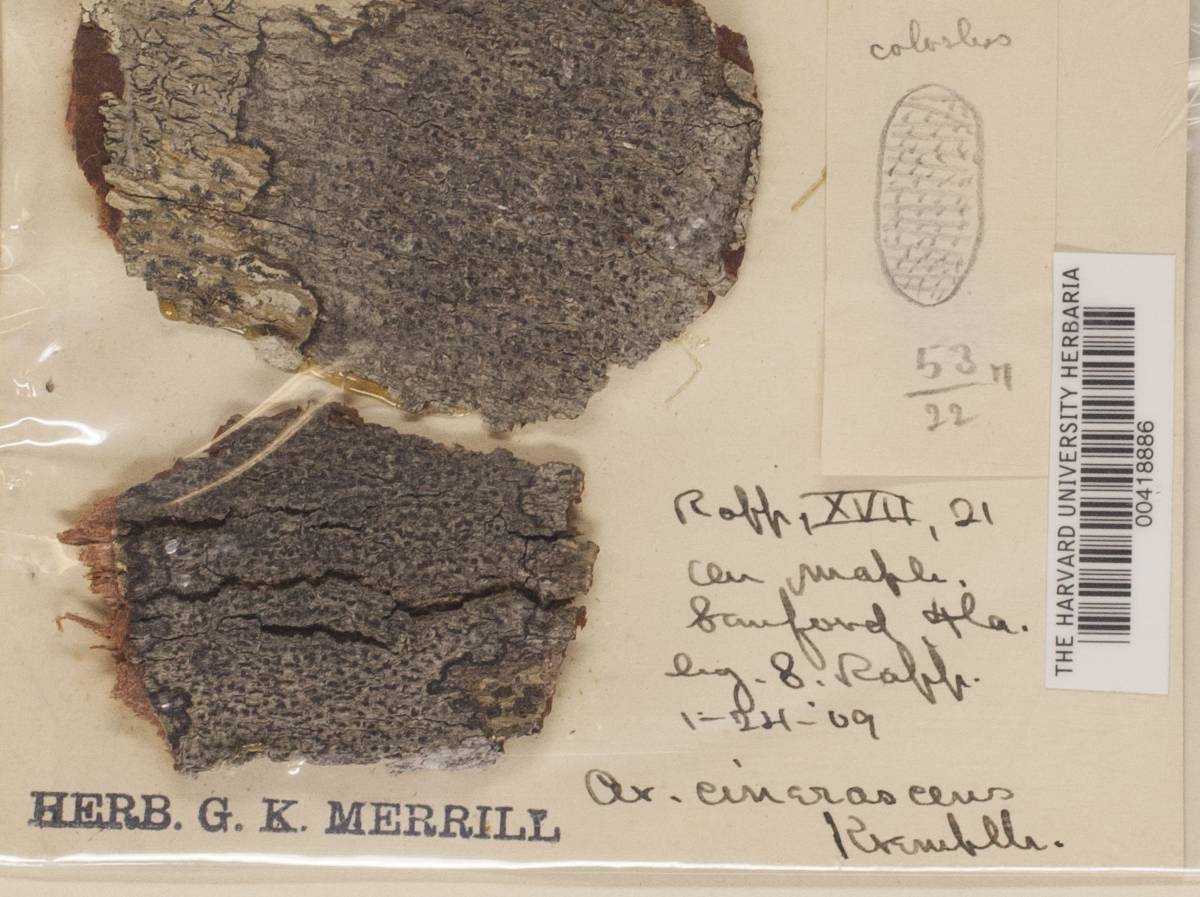 colorless
53 µ
22
Rapp, XVII, 21
on maple.
Sanford Fla.
leg. S. Rapp.
1-24-'09
Ar. cinerascens
Krempelh.
HERB. G. K. MERRILL
THE HARVARD UNIVERSITY HERBARIA
00418886